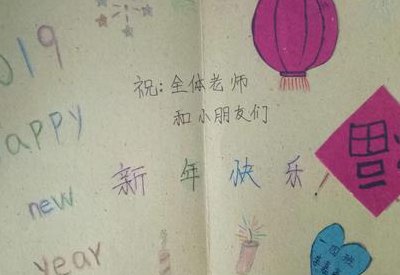 2019
Happy
new
year
祝:全体老师
和小朋友们
新年快乐!
福
一四班